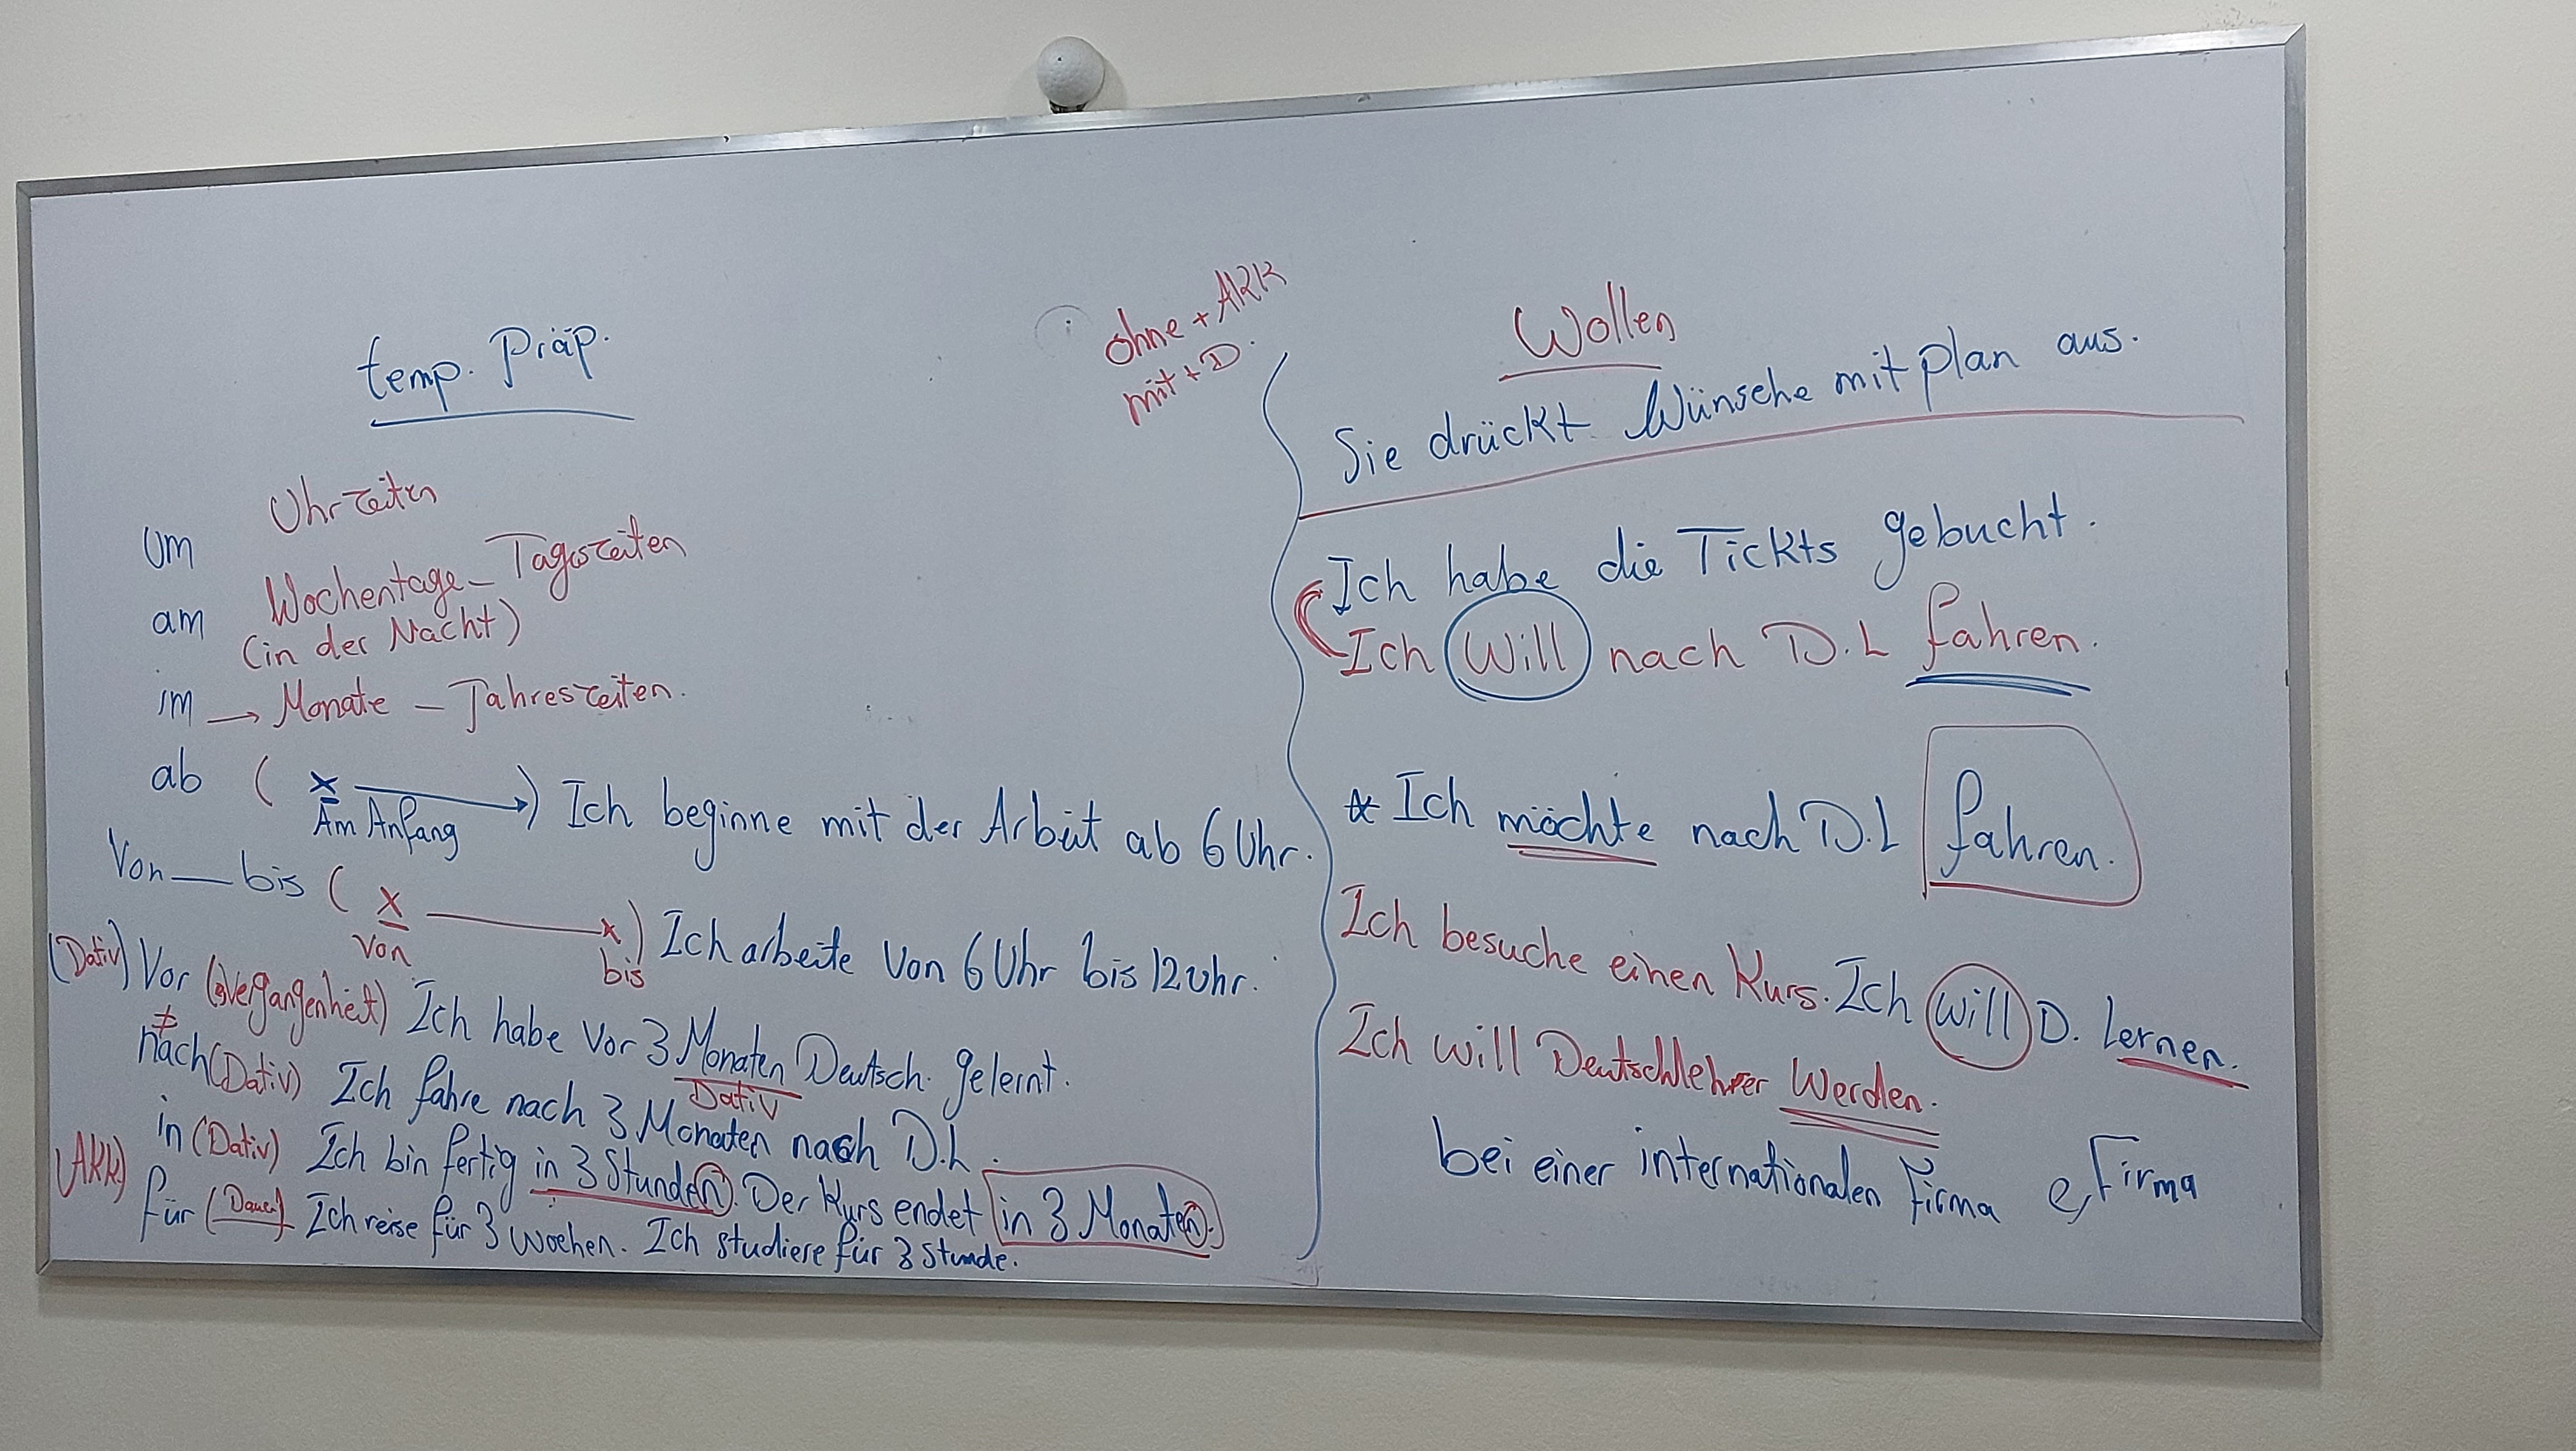 temp. Präp.
um Uhrzeiten
am Wochentage – Tageszeiten
(in der Nacht)
im → Monate – Jahreszeiten.
ab ( x → ) Ich beginne mit der Arbeit ab 6 Uhr.
Am Anfang
Von — bis ( x — x ) Ich arbeite von 6 Uhr bis 12 Uhr.
von bis
(Dativ) Vor (Vergangenheit) Ich habe vor 3 Monaten Deutsch gelernt.
≠ Dativ
nach (Dativ) Ich fahre nach 3 Monaten nach D.L.
in (Dativ) Ich bin fertig in 3 Stunden. Der Kurs endet in 3 Monaten.
(AKK) für (Dauer) Ich reise für 3 Wochen. Ich studiere für 3 Stunde.
ohne + AKK
mit + D.
Wollen
Sie drückt Wünsche mit plan aus.
Ich habe die Tickts gebucht.
Ich will nach D.L fahren.
* Ich möchte nach D.L fahren.
Ich besuche einen Kurs. Ich will D. Lernen.
Ich will Deutschlehrer werden.
bei einer internationalen Firma e, Firma